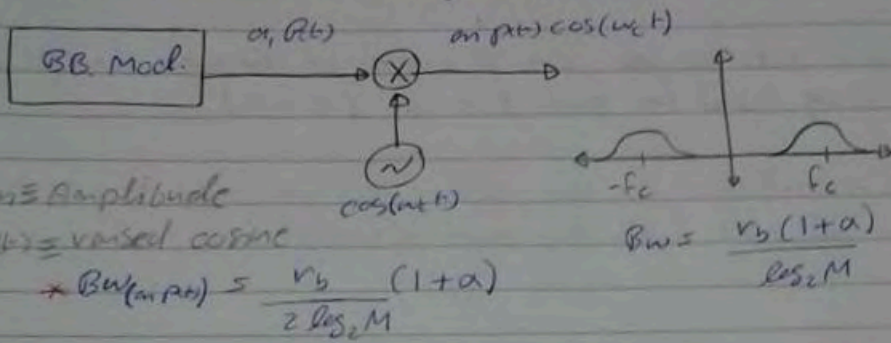 BB. Mod.
an p(t)
an p(t) cos(wct)
cos(wct)
-fc
fc
≡ Amplitude
≡ raised cosine
* BW(an p(t)) = rb / 2 log2M (1+α)
BW = rb (1+α) / log2M